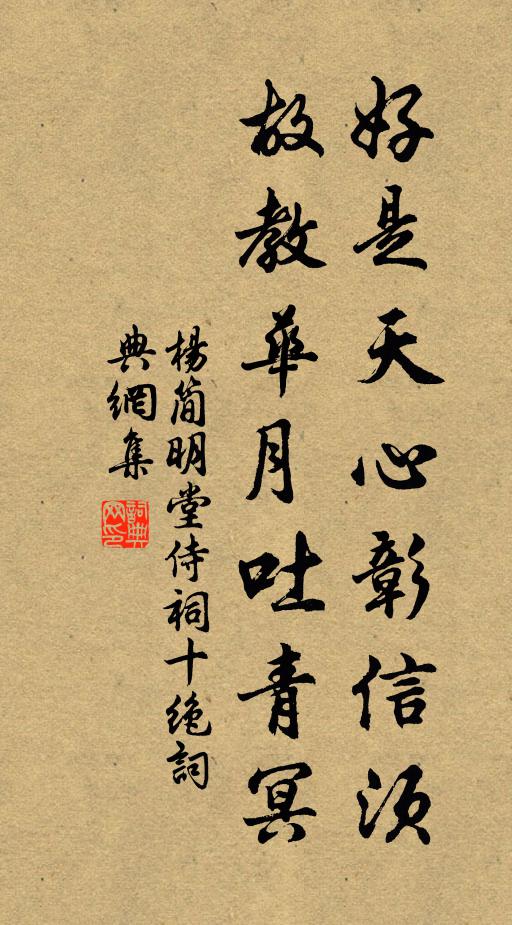 好是天心彰信須
故教華月吐青冥
楊簡明堂侍祠十絶詞
典網集
詞典網印